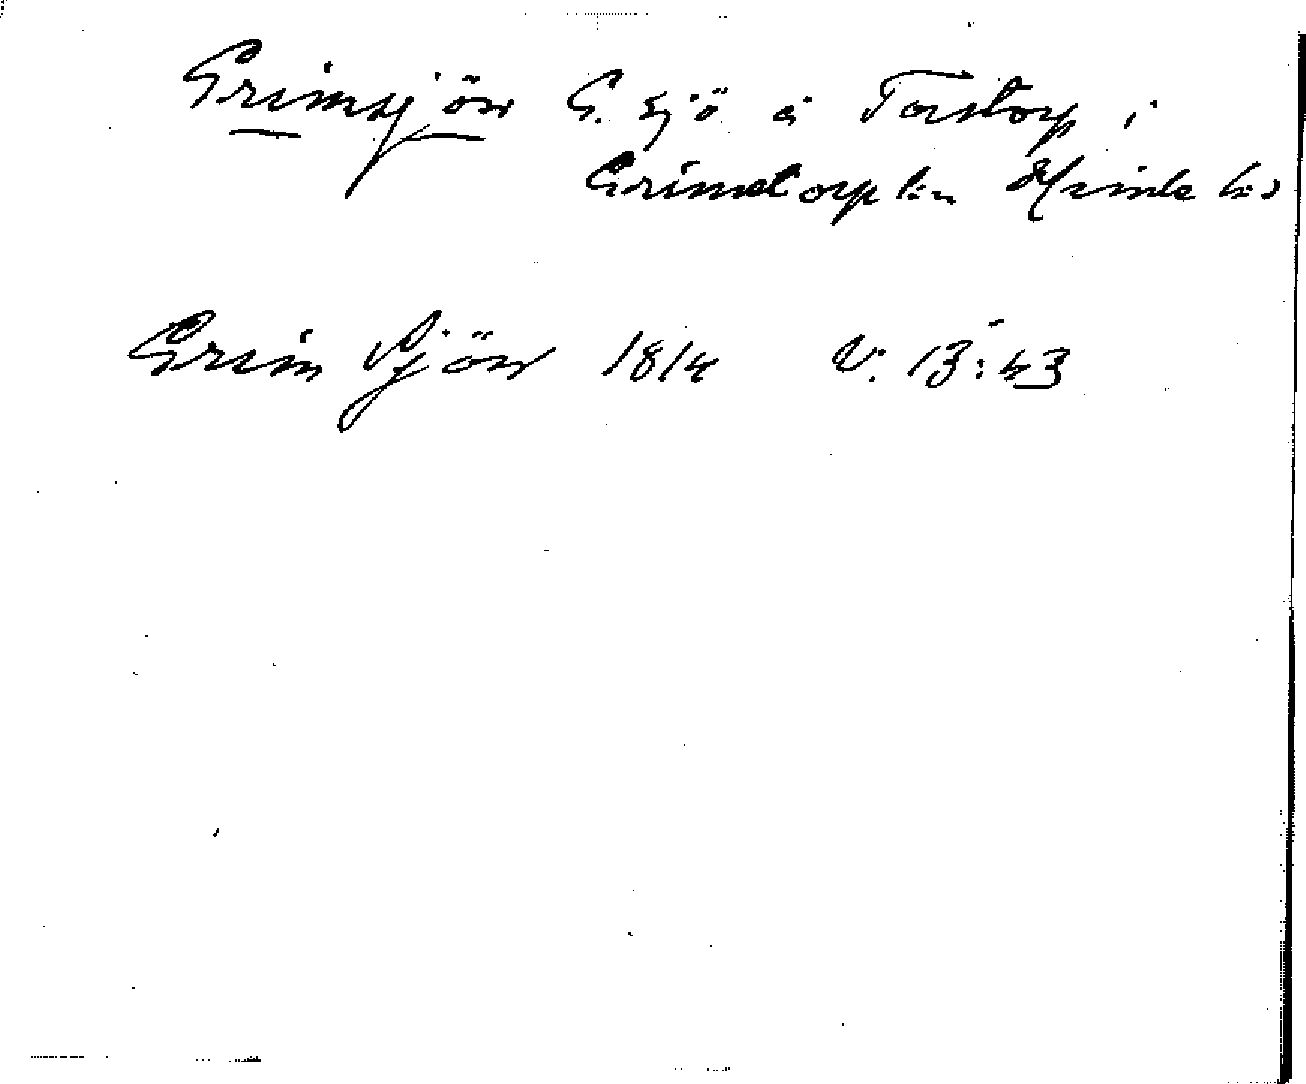 Grimsjön G. sjö å Torstorp i
Grimetorp l:n Himle hd
Grim Sjön 1814 V. 13:43